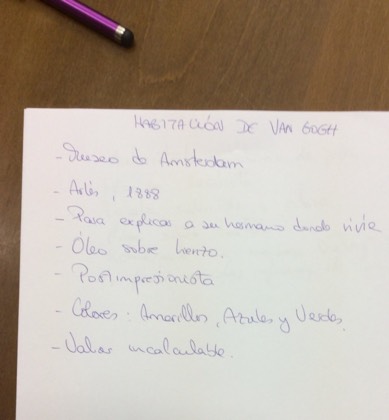 HABITACIÓN DE VAN GOGH
- Museo de Amsterdam
- Arlés, 1888
- Para explicar a su hermano donde vivía
- Óleo sobre lienzo.
- Postimpresionista
- Colores: Amarillos, Azules y Verdes.
- Valor incalculable.